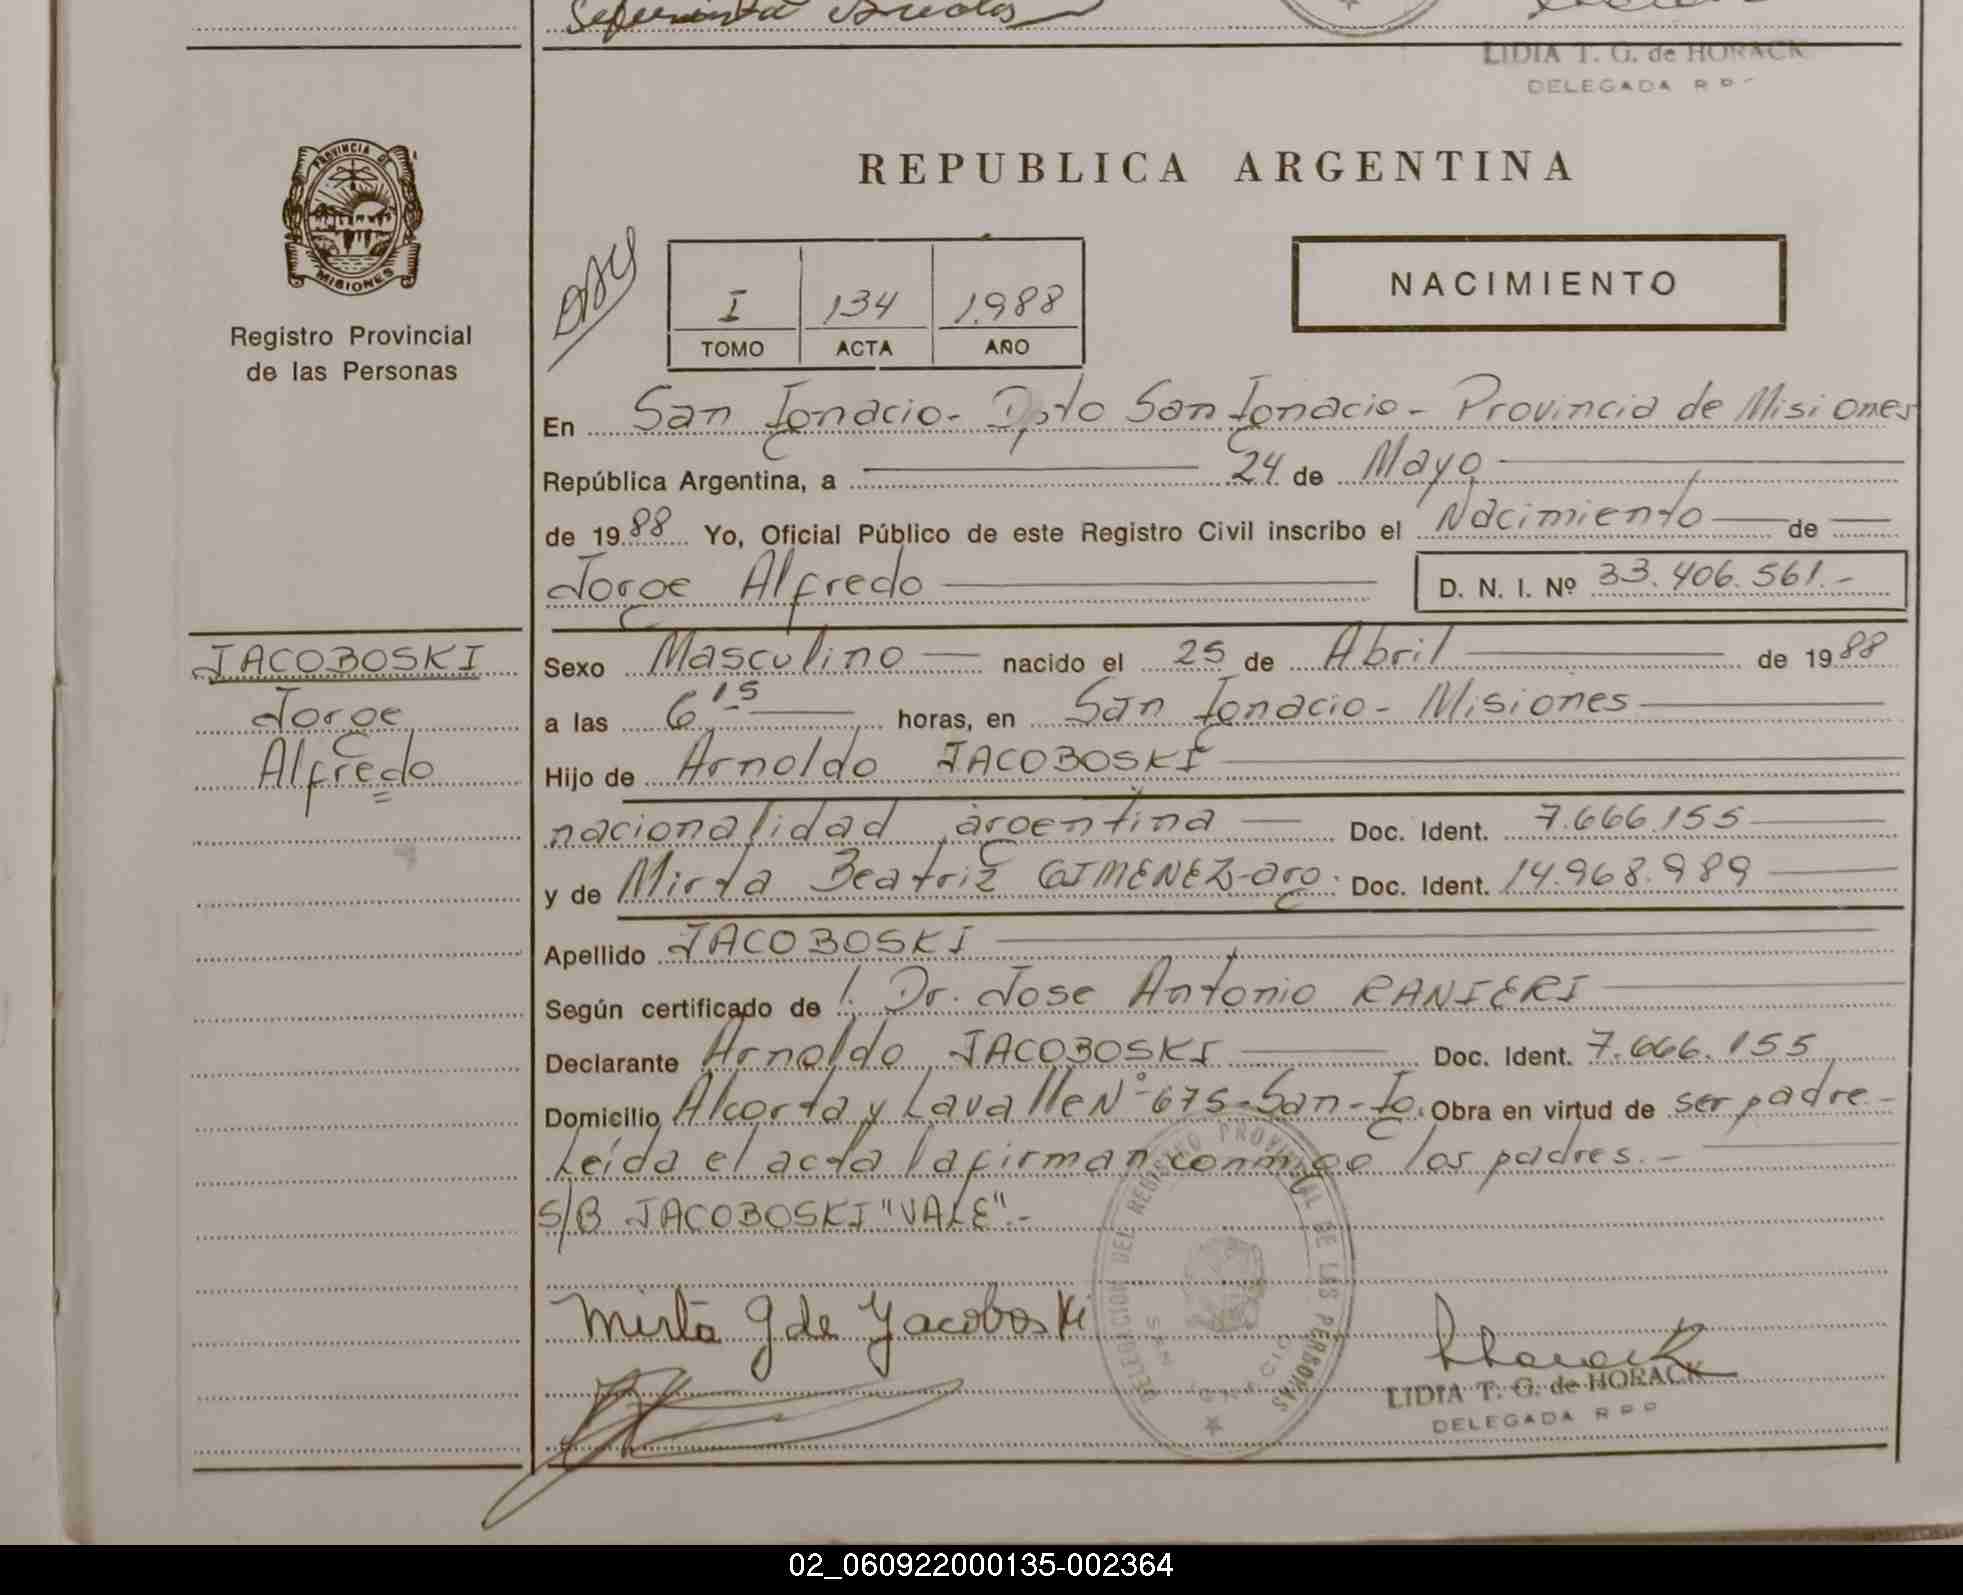 LIDIA T. G. de HORACK
DELEGADA R P
PROVINCIA DE
MISIONES
Registro Provincial
de las Personas
REPUBLICA ARGENTINA
I 134 1.988
TOMO ACTA AÑO
NACIMIENTO
En San Ignacio- Dpto San Ignacio- Provincia de Misiones
República Argentina, a 24 de Mayo
de 1988 Yo, Oficial Público de este Registro Civil inscribo el Nacimiento de
Jorge Alfredo D. N. I. Nº 33.406.561.-
JACOBOSKI
Jorge
Alfredo
Sexo Masculino nacido el 25 de Abril de 1988
a las 6 15 horas, en San Ignacio- Misiones
Hijo de Arnoldo JACOBOSKI
nacionalidad argentina Doc. Ident. 7.666.155
y de Mirta Beatriz GIMENEZ-arg. Doc. Ident. 14.968.989
Apellido JACOBOSKI
Según certificado de Dr. Jose Antonio RANIERI
Declarante Arnoldo JACOBOSKI Doc. Ident. 7.666.155
Domicilio Alcorta y Lavalle N° 675-San-Ig. Obra en virtud de ser padre-
Leída el acta la firman conmigo los padres.-
S/B JACOBOSKI "VALE".-
DELEGACION DEL REGISTRO PROVINCIAL DE LAS PERSONAS
SAN IGNACIO
Mirta G de Jacoboski
LIDIA T. G. de HORACK
DELEGADA R P P
02_060922000135-002364